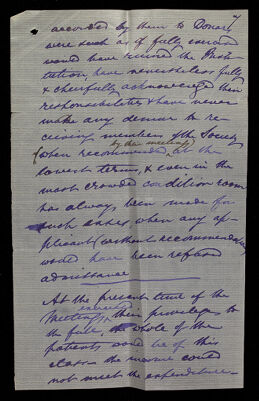 7
accorded by them to Donors
were such as if fully exercised
would have ruined the Insti
tution, have nevertheless fully
& cheerfully acknowledged their
responsibilities & have never
made any demur to re-
ceiving members of the Society
by their meetings
(when recommended) at the
lowest terms, & even in the
most crowded condition room
has always been made for
such cases when any ap-
plicants (without recommendation)
would have been refused
admittance
At the present time if the
Meetings exercised their privileges to
the full, the whole of the
patients would be of this
class & the income could
not meet the expenditure